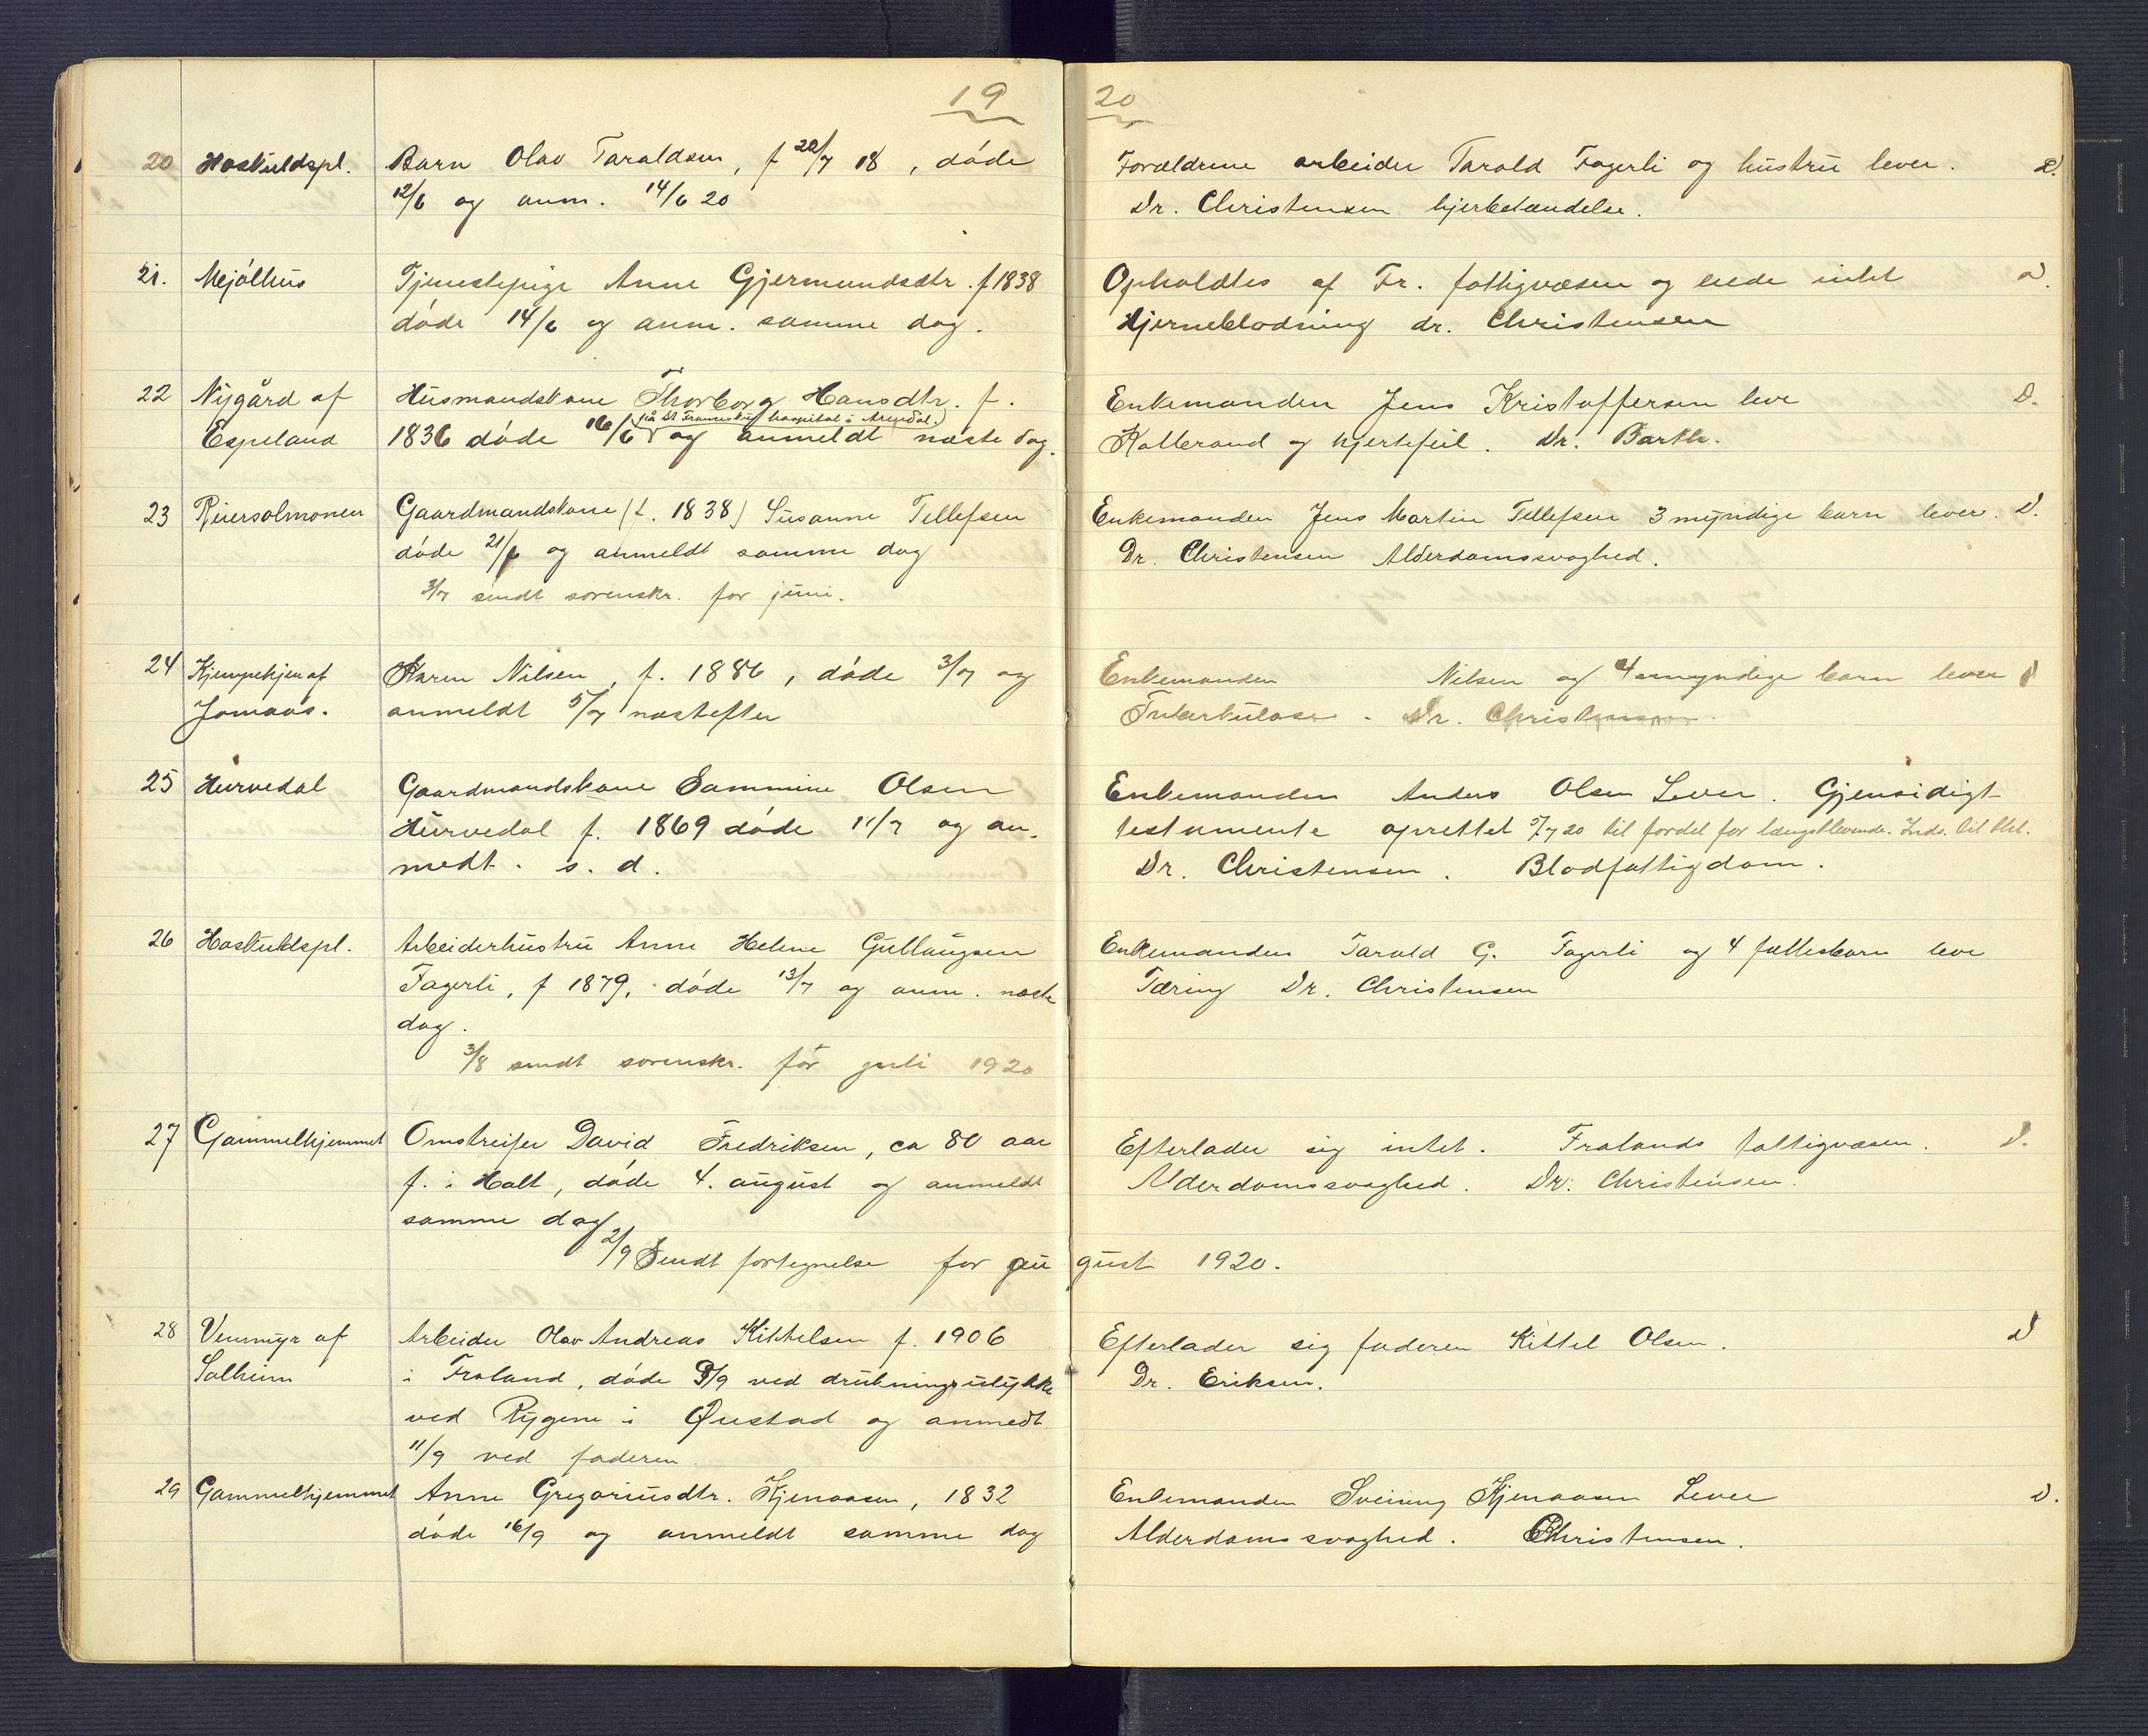 19
20 Haskuldspl. Barn Olav Taraldsen, f 22/7 18, døde
12/6 og anm. 14/6 20
21. Mjølhus Tjenestepige Anne Gjermundsdtr. f 1838
døde 14/6 og anm. samme dag.
22 Nygård af Husmandskone Thorborg Hansdtr. f.
på St. Franciskus hospital i Arendal.
Espeland 1836 døde 16/6 og anmeldt næste dag.
23 Gaardmandskone (f. 1838) Susanne Tellefsen
døde 21/6 og anmeldt samme dag
3/7 sendt sorenskr. for juni.
24 af Karen Nilsen, f. 1886, døde 3/7 og
Jomaas. anmeldt 5/7 næstefter
25 Hurvedal Gaardmandskone Sammine Olsen
Hurvedal f. 1869 døde 11/7 og an-
medt. s. d.
26 Haskuldspl. Arbeiderhustru Anne Helene Gullaugsen
Fagerli, f 1879, døde 13/7 og anm. næste
dag.
3/8 sendt sorenskr. for juli 1920
27 Gammelhjemmet Omstreifer David Fredriksen, ca 80 aar
f. i Holt, døde 4. august og anmeldt
samme dag
2/9 Sendt fortegnelse for au
28 Venmyr af Arbeider Olav Andreas Kittelsen f. 1906
Solheim i Froland, døde 9/9 ved drukningsulykke
ved Rygene i Øiestad og anmedt
11/9 ved faderen
29 Gammelhjemmet Anne Gregoriusdtr. Hjemaasen, 1832
døde 16/9 og anmeldt samme dag
20
Forældrene arbeider Tarald Fagerli og hustru lever. D.
Dr. Christensen
Opholdtes af Fr. fattigvæsen og eiede intet D.
Hjerneblødning dr. Christensen
Enkemanden Jens Kristoffersen leve D.
Kolbrand og hjertefeil. Dr. Barth.
Enkemanden Jens Martin Tellefsen 3 myndige barn lever. D.
Dr. Christensen Alderdomssvaghed.
Enkemanden Nilsen og 4 umyndige barn lever D
Tuberkulose. Dr. Christensen.
Enkemanden Anders Olsen Lever. Gjensidigt
testamente oprettet 5/7 20 til fordel for længstlevende. Inds. til thl.
Dr. Christensen. Blodfattigdom.
Enkemanden Tarald G. Fagerli og 4 fællesbarn leve
Tæring Dr. Christensen
Efterlader sig intet. Frolands fattigvæsen. D.
Alderdomssvaghed. Dr. Christensen.
gust 1920.
Efterlader sig faderen Kittel Olsen. D
Dr. Eriksen.
Enkemanden Sveinung Hjemaasen Lever D.
Alderdomssvaghed. Christensen.